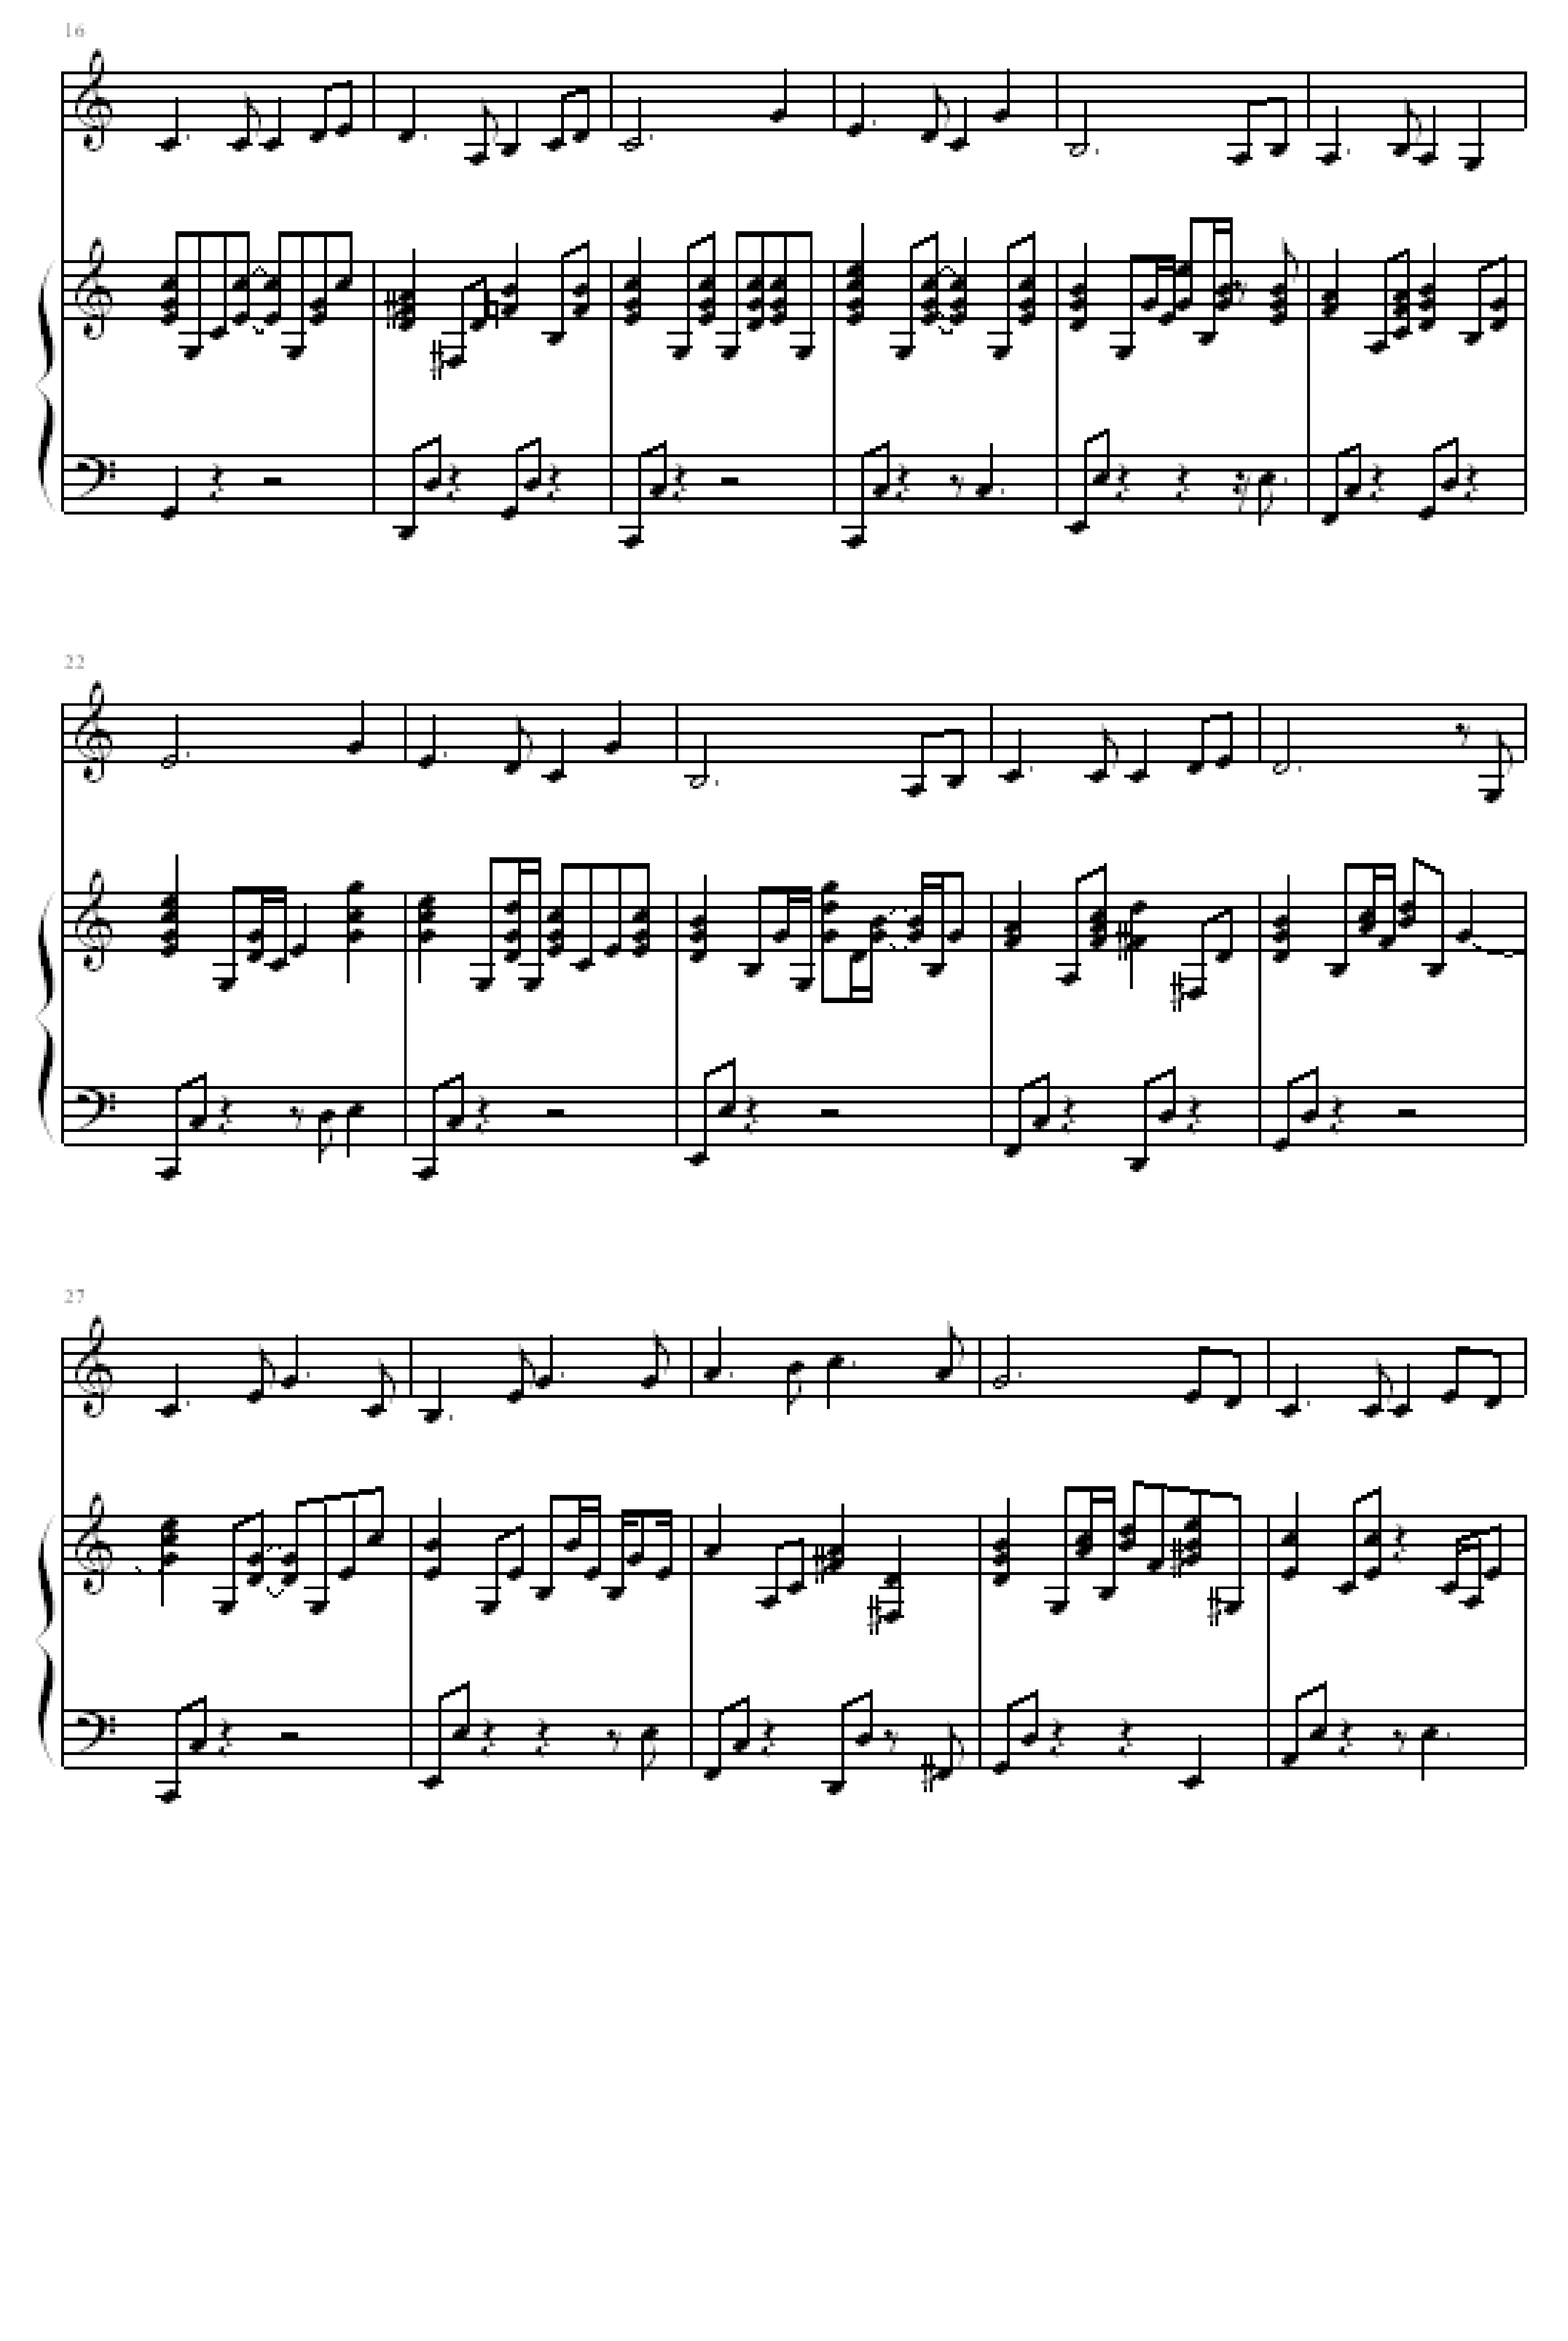 16
22
27